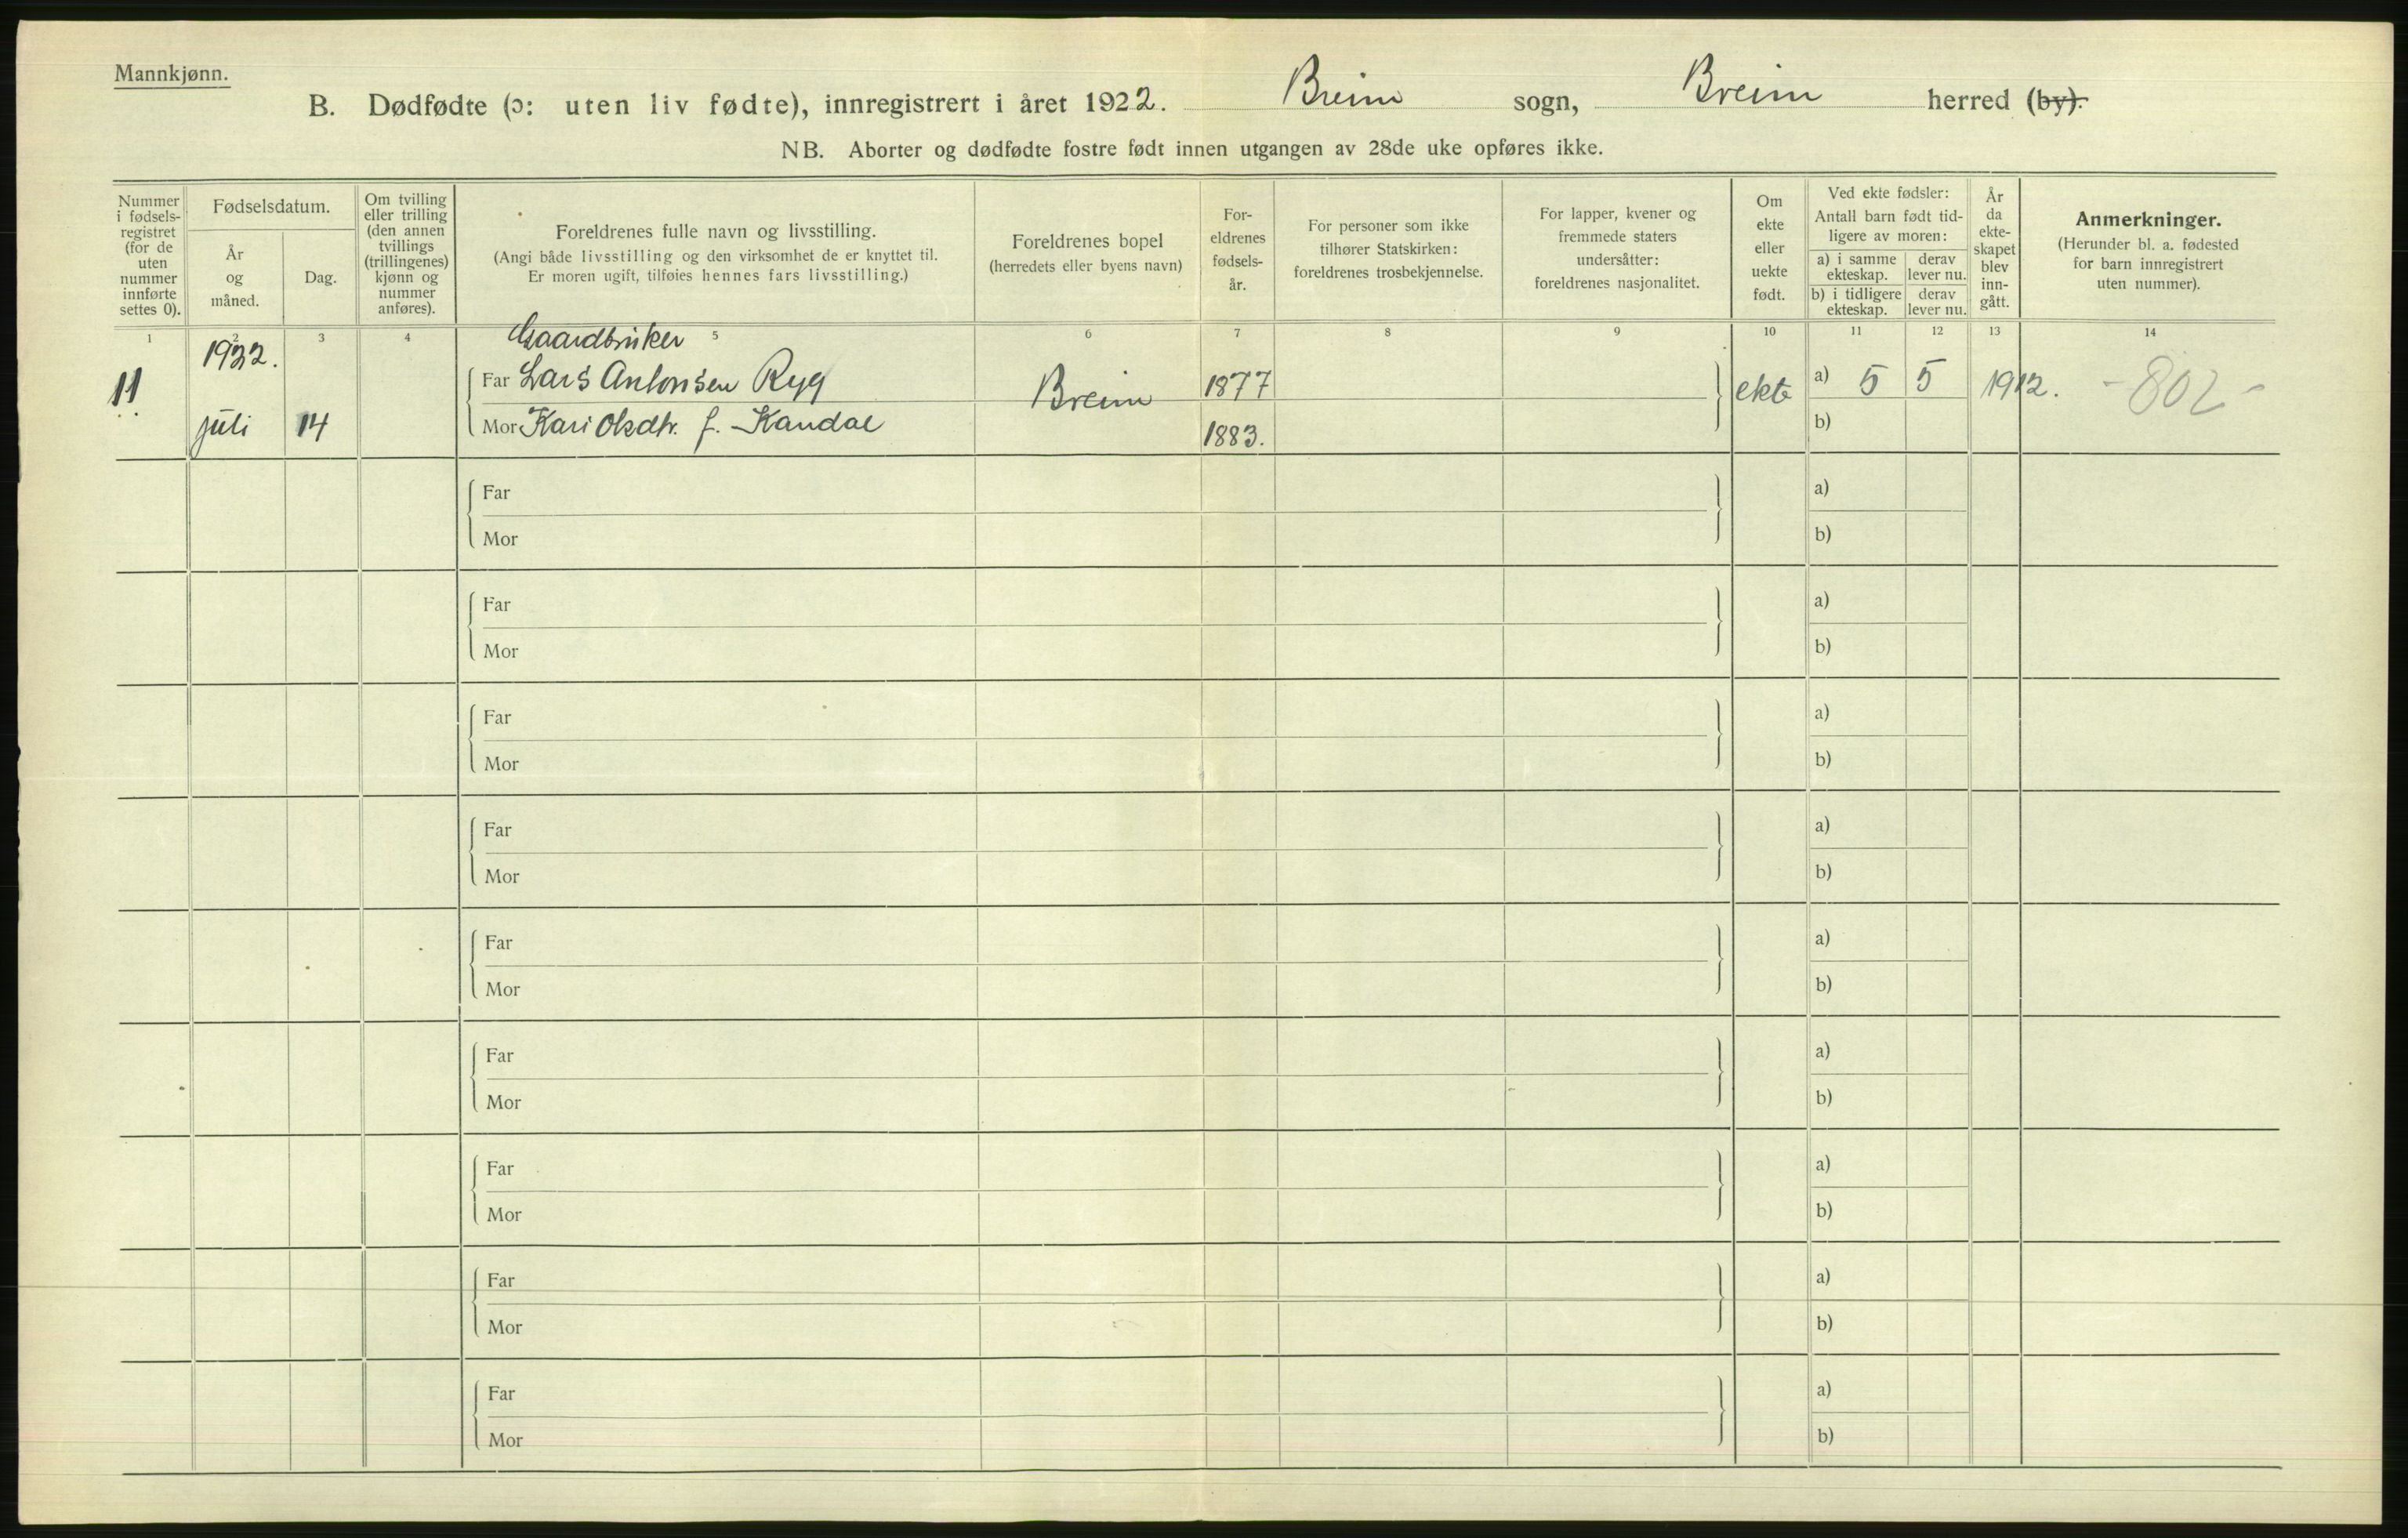 Mannkjønn.
B. Dødfødte (ɔ: uten liv fødte), innregistrert i året 1922. Breim sogn, Breim herred (by).
NB. Aborter og dødfødte fostre født innen utgangen av 28de uke opføres ikke.
Nummer i fødsels-registret (for de uten nummer innførte settes 0).
Fødselsdatum.
År og måned.
Dag.
Om tvilling eller trilling (den annen tvillings (trillingenes) kjønn og nummer anføres).
Foreldrenes fulle navn og livsstilling.
(Angi både livsstilling og den virksomhet de er knyttet til.
Er moren ugift, tilføies hennes fars livsstilling.)
Foreldrenes bopel
(herredets eller byens navn)
For-eldrenes fødsels-år.
For personer som ikke tilhører Statskirken: foreldrenes trosbekjennelse.
For lapper, kvener og fremmede staters undersåtter: foreldrenes nasjonalitet.
Om ekte eller uekte født.
Ved ekte fødsler:
Antall barn født tid-ligere av moren:
a) i samme ekteskap.
derav lever nu.
b) i tidligere ekteskap.
derav lever nu.
År da ekte-skapet blev inn-gått.
Anmerkninger.
(Herunder bl. a. fødested for barn innregistrert uten nummer).
1 2 3 4 5 6 7 8 9 10 11 12 13 14
Gaardbruker
11 1922. Far Lars Antonsen Ryg Breim 1877 ekte a) 5 5 1912. -802-
juli 14 Mor Kari Olsdtr. f. Kandal 1883. b)
Far a)
Mor b)
Far a)
Mor b)
Far a)
Mor b)
Far a)
Mor b)
Far a)
Mor b)
Far a)
Mor b)
Far a)
Mor b)
Far a)
Mor b)
Far a)
Mor b)